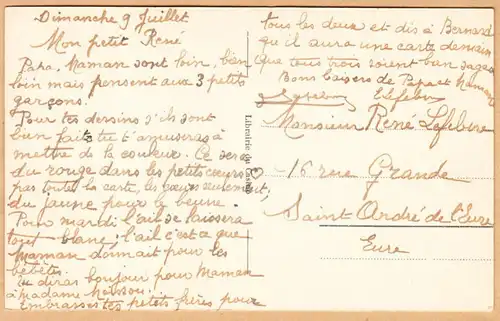 Dimanche 9 Juillet
Mon petit René
Papa, Maman sont loin, bien
loin mais pensent aux 3 petits
garçons.
Pour tes dessins s'ils sont
bien faits tu t'amuseras à
mettre de la couleur. Ce sera
du rouge dans les petits cœurs
pas toute la carte, les cœurs seulement,
du jaune pour le beurre.
Pour mardi l'ail se laissera
tout blanc, l'ail c'est ce que
Maman donnait pour les
bébêtes.
Tu diras bonjour pour Maman
à Madame
Embrasses tes petits frères pour
tous les deux et dis à Bernard
qu'il aura une carte demain
Que tous trois soient bien sages
Bons baisers de Papa et Maman
Lefebvre
Librairie du
Monsieur René Lefebvre
16 rue Grande
Saint André de l'Eure
Eure